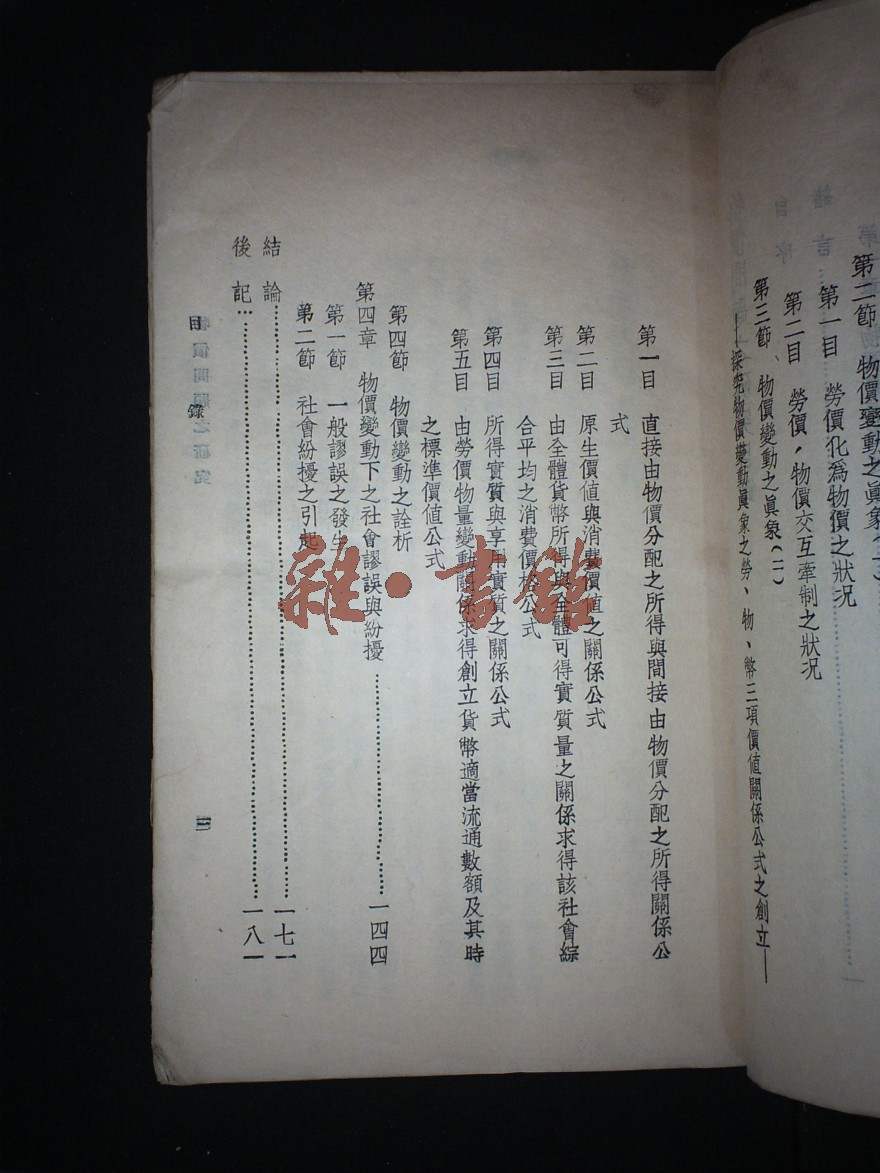 第二節　物價變動之眞象(一)
第一目　勞價化爲物價之狀況
第二目　勞價，物價交互牽制之狀況
第三節、物價變動之眞象(二)
——探究物價變動眞象之勞、物、幣三項價値關係公式之創立—
第一目　直接由物價分配之所得與間接由物價分配之所得關係公
式
第二目　原生價値與消費價値之關係公式
第三目　由全體貨幣所得與全體可得實質量之關係求得該社會綜
合平均之消費價格公式
第四目　所得實質與享用實質之關係公式
第五目　由勞價物量變動關係求得創立貨幣適當流通數額及其時
之標準價値公式
第四節　物價變動之詮析
第四章　物價變動下之社會謬誤與紛擾…………一四四
第一節　一般謬誤之發生
第二節　社會紛擾之引起
結論…………一七一
後記…………一八一
目錄
三
雜·書館